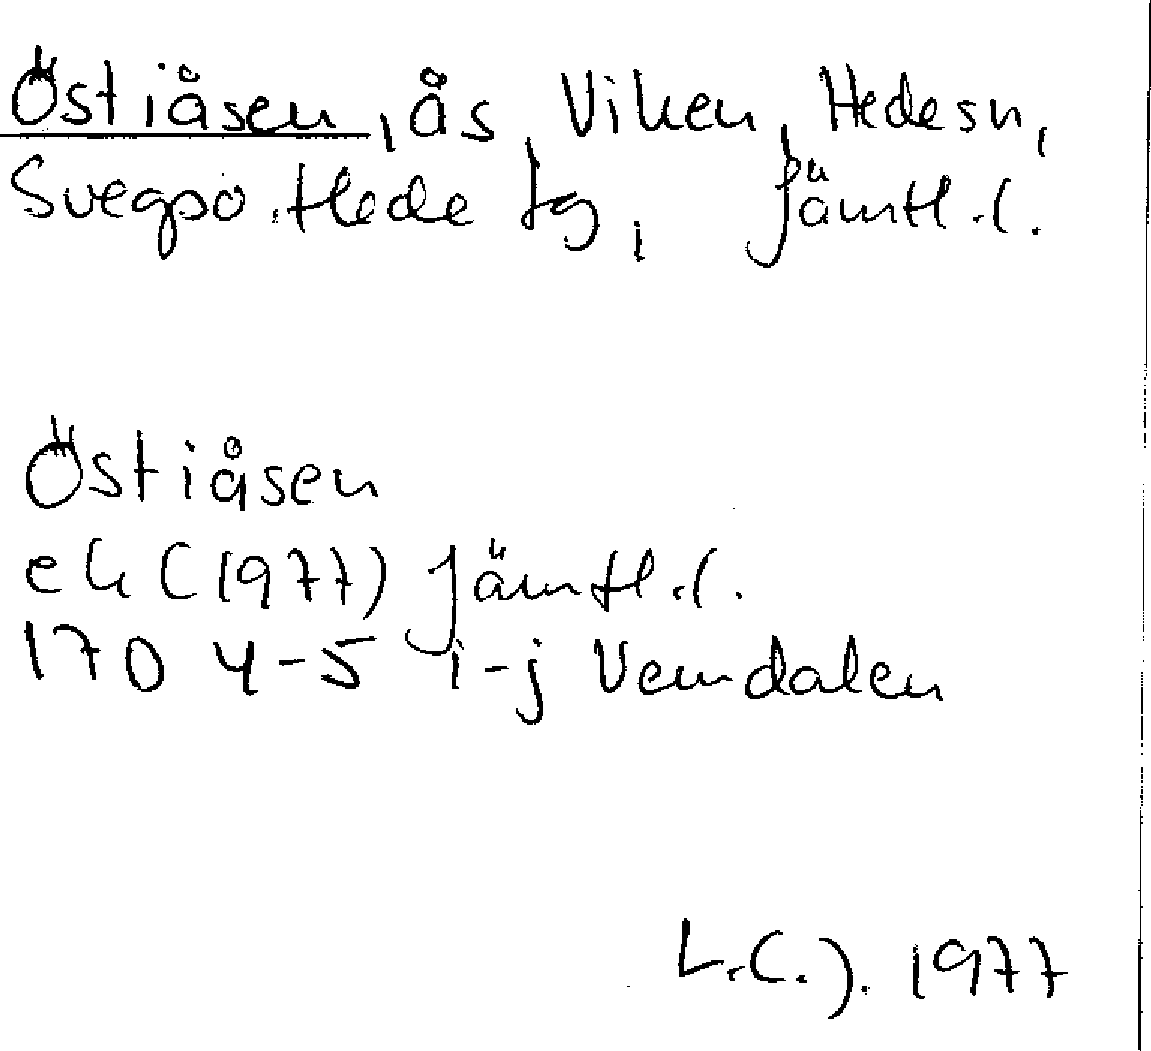 Östiåsen, ås, Viken, Hede sn,
Svegs po, Hede tg, Jämtl. l.
Östiåsen
ek (1977) Jämtl. l.
17D 4-5 i-j Vemdalen
L.C.J. 1977